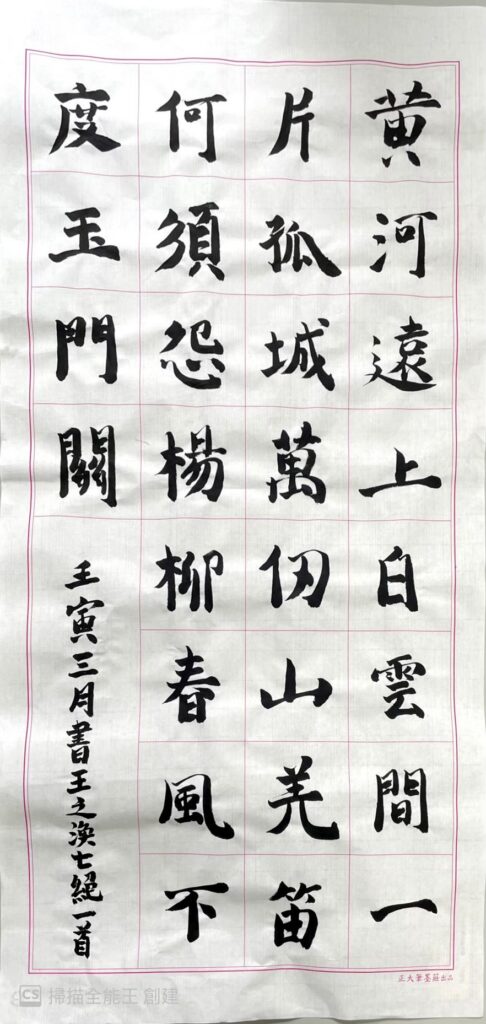 黄河遠上白雲間一
片孤城萬仞山羌笛
何須怨楊柳春風不
度玉門關
壬寅三月書王之渙七絕一首
正大筆墨莊出品
CS 掃描全能王 創建